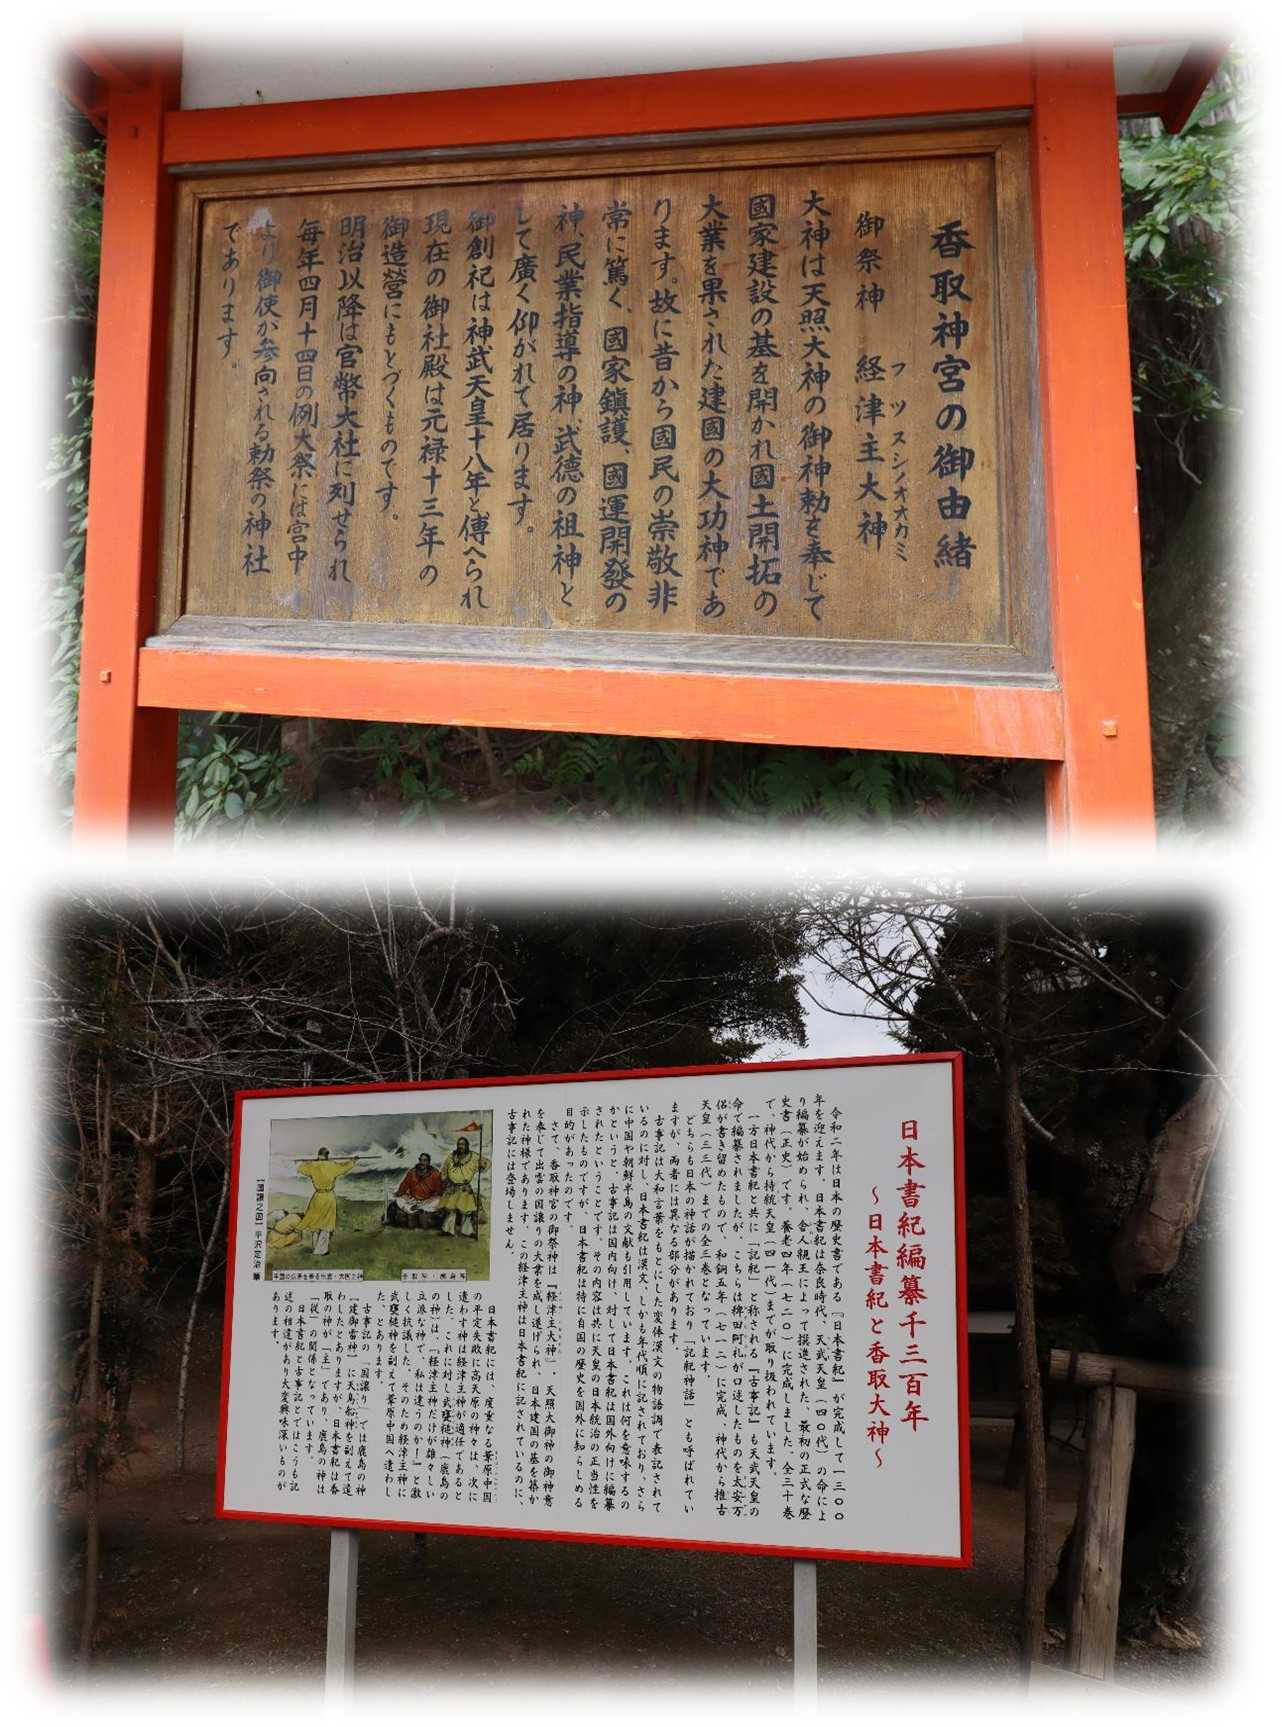 香取神宮の御由緒
フツヌシノオオカミ
御祭神 経津主大神
大神は天照大神の御神勅を奉じて
國家建設の基を開かれ國土開拓の
大業を果された建國の大功神であ
ります。故に昔から國民の崇敬非
常に篤く、國家鎭護、國運開發の
神、民業指導の神、武徳の祖神と
して廣く仰がれて居ります。
御創祀は神武天皇十八年と傳へられ
現在の御社殿は元禄十三年の
御造營にもとづくものです。
明治以降は官幣大社に列せられ
毎年四月十四日の例大祭には宮中
より御使が参向される勅祭の神社
であります。
日本書紀編纂千三百年
〜日本書紀と香取大神〜
令和二年は日本の歴史書である『日本書紀』が完成して一三〇〇
年を迎えます。日本書紀は奈良時代、天武天皇(四〇代)の命によ
り編纂が始められ、舎人親王によって撰進された、最初の正式な歴
史書(正史)です。養老四年(七二〇)に完成しました。全三十巻
で、神代から持統天皇(四一代)までが取り扱われています。
一方日本書紀と共に「記紀」と称される『古事記』も天武天皇の
命で編纂されましたが、こちらは稗田阿礼が口述したものを太安万
侶が書き留めたもので、和銅五年(七一二)に完成、神代から推古
天皇(三三代)までの全三巻となっています。
どちらも日本の神話が描かれており「記紀神話」とも呼ばれてい
ますが、両者には異なる部分があります。
古事記は大和言葉をもとにした変体漢文の物語調で表記されて
いるのに対し、日本書紀は漢文、しかも年代順に記されており、さら
に中国や朝鮮半島の文献も引用しています。これは何を意味するの
かというと、古事記は国内向け、対して日本書紀は国外向けに編纂
されたということです。その内容は共に天皇の日本統治の正当性を
示したものですが、日本書紀は特に自国の歴史を国外に知らしめる
目的があったのです。
さて、香取神宮の御祭神は『経津主大神』。天照大御神の御神意
を奉じて出雲の国譲りの大業を成し遂げられ、日本建国の基を築か
れた神様であります。この経津主神は日本書紀に記されているのに、
古事記には登場しません。
【国譲之図】平沢定治 筆
香取神・鹿島神
日本書紀には、度重なる葦原中国
の平定失敗に高天原の神々は、次に
遣わす神は経津主神が適任であると
した。これに対し武甕槌神(鹿島の
の神)は、「経津主神だけが雄々しい
立派な神で、私は違うのか!」と激
しく抗議した。そのため経津主神に
武甕槌神を副えて葦原中国へ遣わし
た、とあります。
古事記の「国譲り」では鹿島の神
「建御雷神」に天鳥船神を副えて遣
わしたとありますが、日本書紀は香
取の神が「主」であり、鹿島の神は
「従」の関係となっています。
日本書紀と古事記とではこうも記
述の相違があり大変興味深いものが
あります。